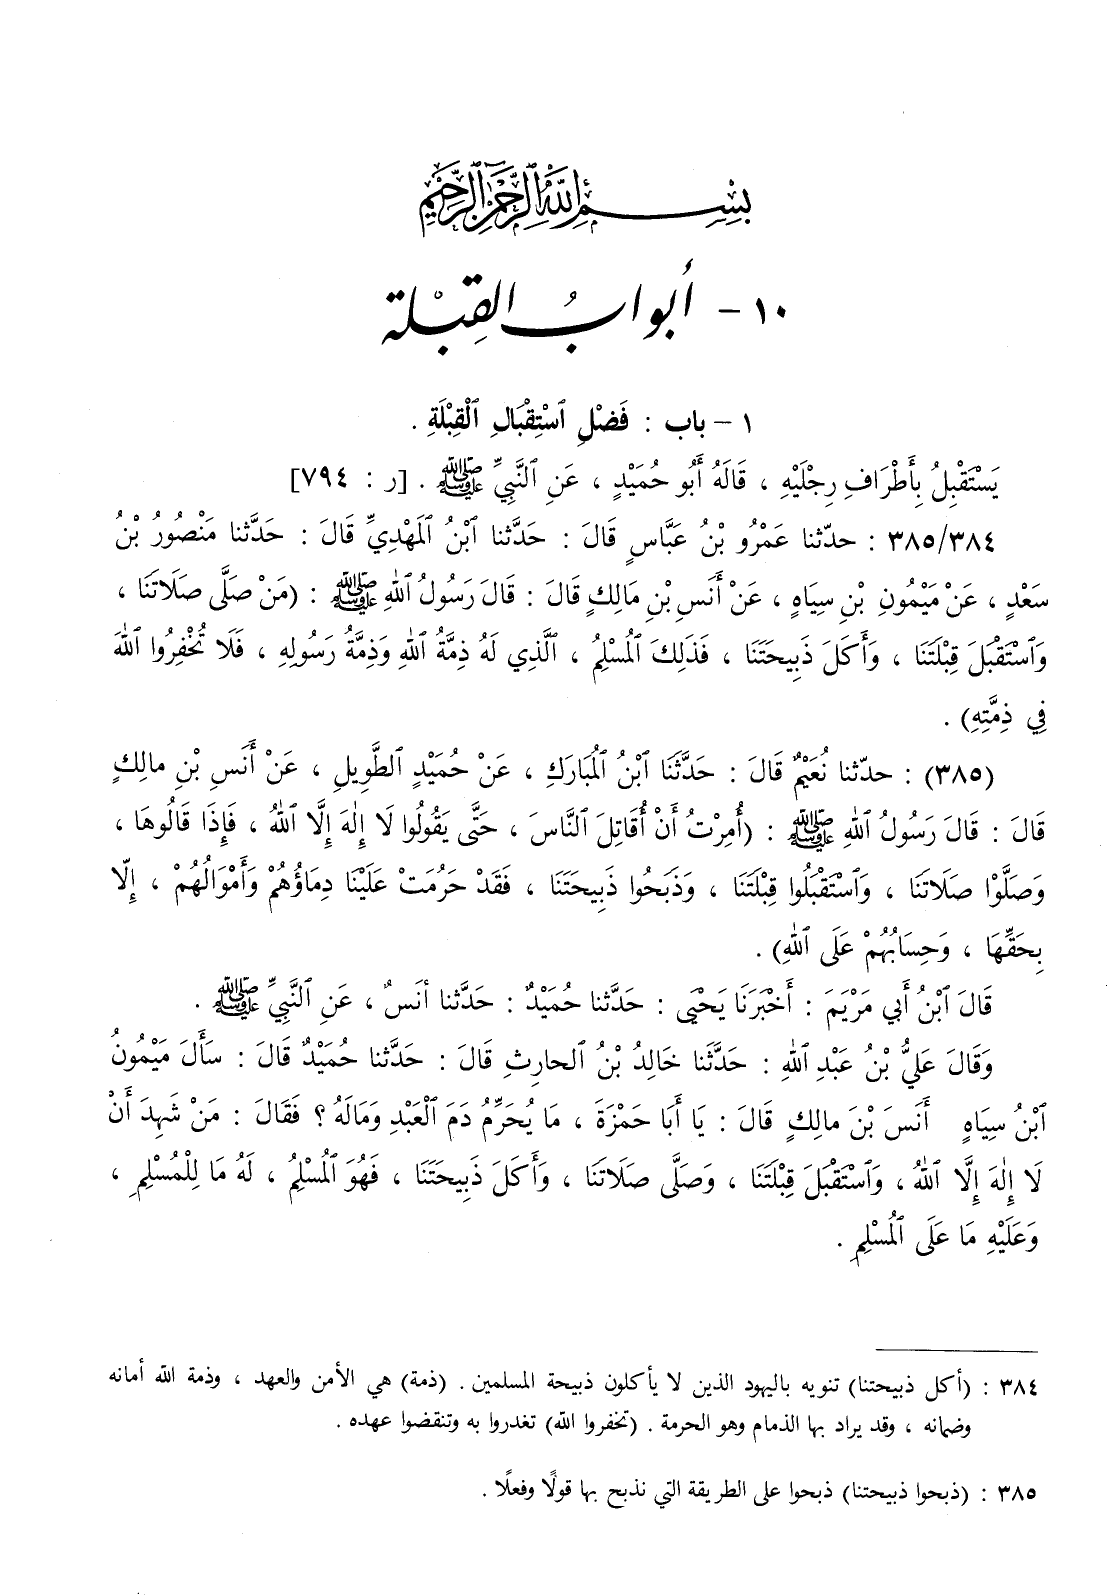 بِسْمِ ٱللَّهِ ٱلرَّحْمَٰنِ ٱلرَّحِيمِ
١٠ - أبوابُ القِبْلة
١ - باب : فَضْلِ ٱسْتِقْبَالِ ٱلْقِبْلَةِ .
يَسْتَقْبِلُ بِأَطْرَافِ رِجْلَيْهِ ، قَالَهُ أَبُو حُمَيْدٍ ، عَنِ ٱلنَّبِيِّ ﷺ . [ر : ٧٩٤]
٣٨٥/٣٨٤ : حدّثنا عَمْرُو بْنُ عَبَّاسٍ قَالَ : حَدَّثنا ٱبْنُ ٱلْمَهْدِيِّ قَالَ : حَدَّثنا مَنْصُورُ بْنُ
سَعْدٍ ، عَنْ مَيْمُونِ بْنِ سِيَاهٍ ، عَنْ أَنَسِ بْنِ مَالِكٍ قَالَ : قَالَ رَسُولُ ٱللهِ ﷺ : (مَنْ صَلَّى صَلَاتَنَا ،
وَٱسْتَقْبَلَ قِبْلَتَنَا ، وَأَكَلَ ذَبِيحَتَنَا ، فَذَلِكَ ٱلْمُسْلِمُ ، ٱلَّذِي لَهُ ذِمَّةُ ٱللهِ وَذِمَّةُ رَسُولِهِ ، فَلَا تُخْفِرُوا ٱللهَ
فِي ذِمَّتِهِ) .
(٣٨٥) : حدّثنا نُعَيْمٌ قَالَ : حَدَّثَنَا ٱبْنُ ٱلْمُبَارَكِ ، عَنْ حُمَيْدٍ ٱلطَّوِيلِ ، عَنْ أَنَسِ بْنِ مالِكٍ
قَالَ : قَالَ رَسُولُ ٱللهِ ﷺ : (أُمِرْتُ أَنْ أُقَاتِلَ ٱلنَّاسَ ، حَتَّى يَقُولُوا لَا إِلٰهَ إِلَّا ٱللهُ ، فَإِذَا قَالُوهَا ،
وَصَلَّوْا صَلَاتَنَا ، وَٱسْتَقْبَلُوا قِبْلَتَنَا ، وَذَبَحُوا ذَبِيحَتَنَا ، فَقَدْ حَرُمَتْ عَلَيْنَا دِماؤُهُمْ وَأَمْوَالُهُمْ ، إِلَّا
بِحَقِّهَا ، وَحِسَابُهُمْ عَلَى ٱللهِ) .
قَالَ ٱبْنُ أَبِي مَرْيَمَ : أَخْبَرَنَا يَحْيَى : حَدَّثنا حُمَيْدٌ : حَدَّثنا أنَسٌ ، عَنِ ٱلنَّبِيِّ ﷺ .
وَقَالَ عَلِيُّ بْنُ عَبْدِ ٱللهِ : حَدَّثَنا خَالِدُ بْنُ ٱلحارِثِ قَالَ : حَدَّثنا حُمَيْدٌ قَالَ : سَأَلَ مَيْمُونُ
ٱبْنُ سِيَاهٍ أَنَسَ بْنَ مالِكٍ قَالَ : يَا أَبَا حَمْزَةَ ، مَا يُحَرِّمُ دَمَ ٱلْعَبْدِ وَمَالَهُ ؟ فَقَالَ : مَنْ شَهِدَ أَنْ
لَا إِلٰهَ إِلَّا ٱللهُ ، وَٱسْتَقْبَلَ قِبْلَتَنَا ، وَصَلَّى صَلَاتَنَا ، وَأَكَلَ ذَبِيحَتَنَا ، فَهُوَ ٱلْمُسْلِمُ ، لَهُ مَا لِلْمُسْلِمِ ،
وَعَلَيْهِ مَا عَلَى ٱلْمُسْلِمِ .
٣٨٤ : (أكل ذبيحتنا) تنويه باليهود الذين لا يأكلون ذبيحة المسلمين . (ذمة) هي الأمن والعهد ، وذمة الله أمانه
وضمانه ، وقد يراد بها الذمام وهو الحرمة . (تخفروا الله) تغدروا به وتنقضوا عهده .
٣٨٥ : (ذبحوا ذبيحتنا) ذبحوا على الطريقة التي نذبح بها قولًا وفعلًا .